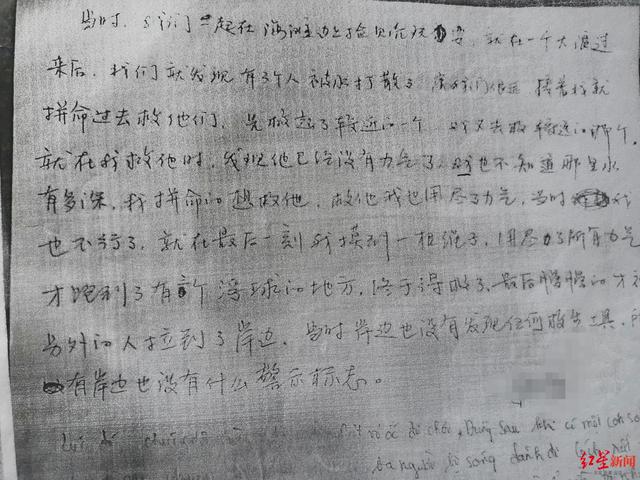 当时,我们一起在海边上捡贝壳玩耍,就在一个大浪过
来后,我们就发现有3个人被水打散了 离我们很远 接着我就
拼命过去救他们,先救起了较近的一个,我又去救较远的那个,
就在我救他时,发现他已经没有力气了,我也不知道那里水
有多深,我拼命的想救他,救他我也用尽了力气,当时 我
也不行了,就在最后一刻我摸到一根绳子,用尽力了所有力气
才跑到了有 浮球的地方,终于得救了,最后慢慢的才被
另外的人拉到了岸边,当时岸边也没有发现任何救生工具,
有岸边也没有什么警示标志。
đi chơi, Đang sau khi có một con só
ba người bị sóng đánh đi
红星新闻